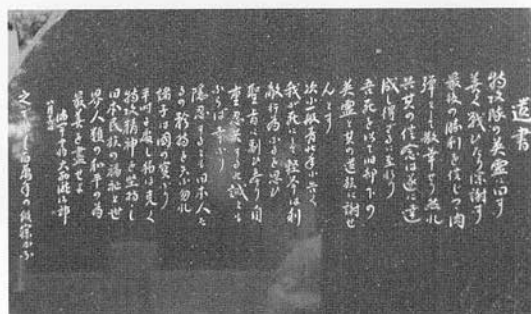 遺書
特攻隊の英霊に曰す
善く戦ひたり深謝す
最後の勝利を信じつゝ肉
彈として散華せり然れ
共其の信念は遂に達
成し得ざるに至れり
吾死を以て旧部下の
英霊と其の遺族に謝せ
んとす
次に一般青壮年に告ぐ
我が死にして軽挙は利
敵行為なるを思ひ
聖旨に副ひ奉り自
重忍苦するの誡とも
ならば幸なり
隠忍するとも日本人た
るの矜持を失ふ勿れ
諸子は國の寶なり
平時に處し猶ほ克く
特攻精神を堅持し
日本民族の福祉と世
界人類の和平の為
最善を盡せよ
海軍中将大西瀧治郎
之でよし百萬年の仮寝かな